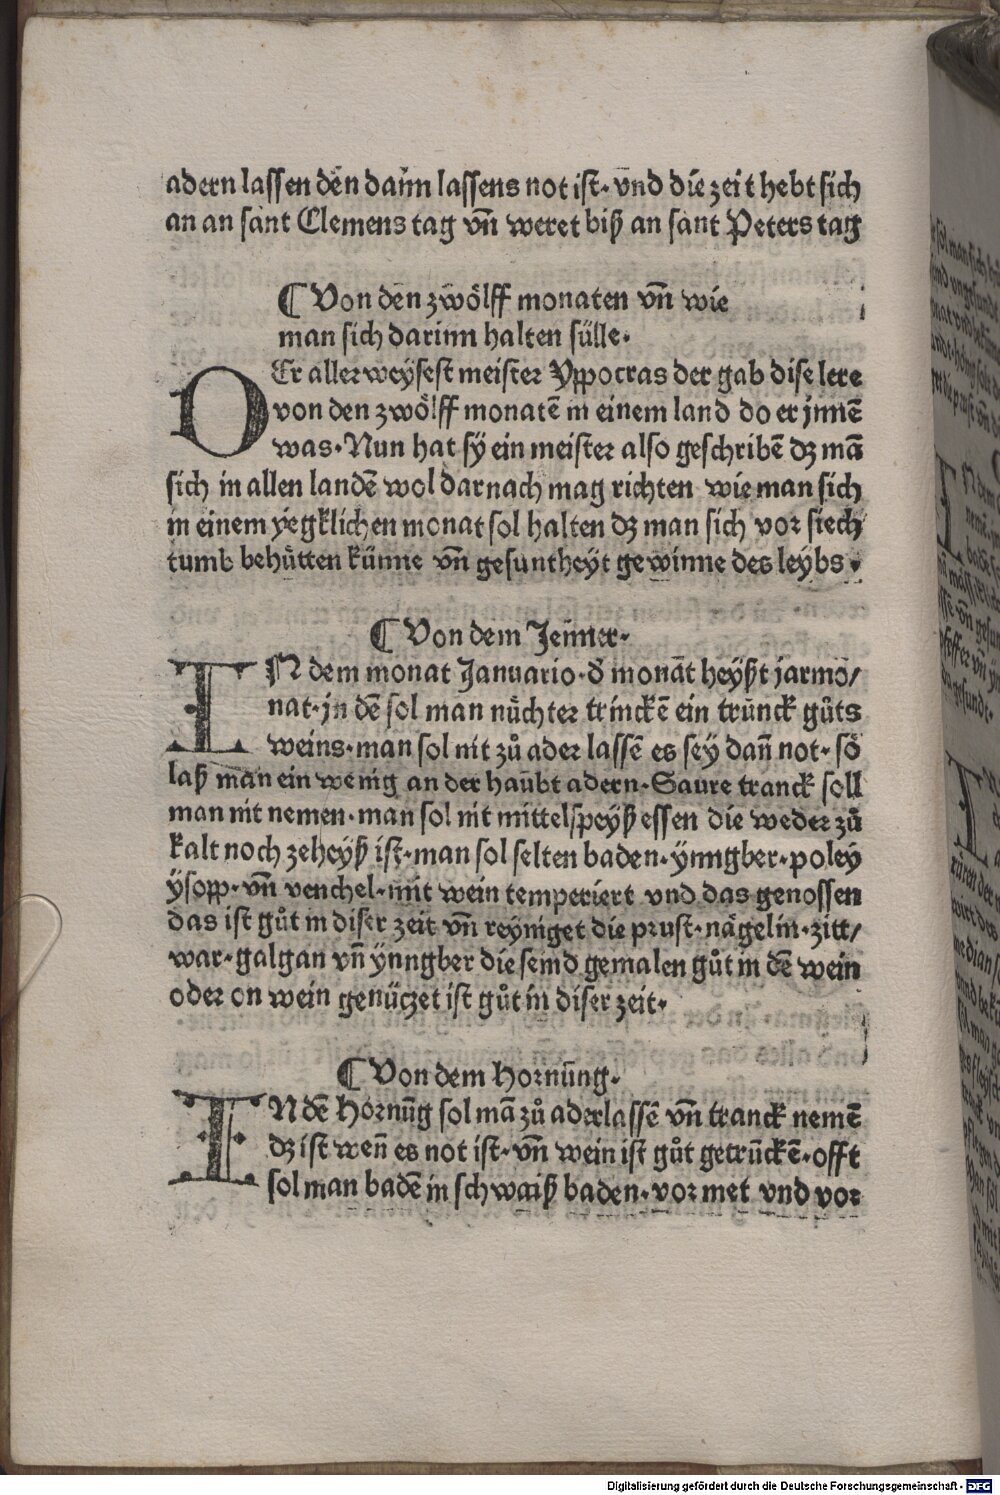 adern lassen den dañn lassens not ist· vnd die zeit hebt sich
an an sant Clemens tag vñ weret biß an sant Peters tag
¶ Von den zwölff monaten vñ wie
man sich darinn halten sülle·
DEr aller weysest meister Yppocras der gab dise lere
von den zwölff monatē in einem land do er jnnē
was· Nun hat sÿ ein meister also geschribē dz mā
sich in allen landē wol darnach mag richten wie man sich
in einem yegklichen monat sol halten dz man sich vor siech
tumb behůtten künne vñ gesuntheyt gewinne des leybs·
¶ Von dem Jenner·
IN dem monat Januario· d̄ monāt heyßt jarmo/
nat· jn dē sol man nůchter trinckē ein trunck gůts
weins· man sol nit zů ader lassē es sey dañ not· so
laß man ein wenig an der haubt adern· Saure tranck soll
man nit nemen· man sol nit mittelspeyß essen die weder zů
kalt noch zeheyß ist· man sol selten baden· ynngber· poley
ysopp· vñ venchel· mit wein temperiert vnd das genossen
das ist gůt in diser zeit vñ reyniget die prust· nägelin· zitt/
war· galgan vñ ynngber die seind gemalen gůt in dē wein
oder on wein genüczet ist gůt in diser zeit·
¶ Von dem Hornūng·
IN dē Hornūg sol mā zů aderlassē vñ tranck nemē
dz ist weñ es not ist· vñ wein ist gůt getrūckē· offt
sol man badē in schwaiß baden· vor met vnd vor
Digitalisierung gefördert durch die Deutsche Forschungsgemeinschaft - DFG